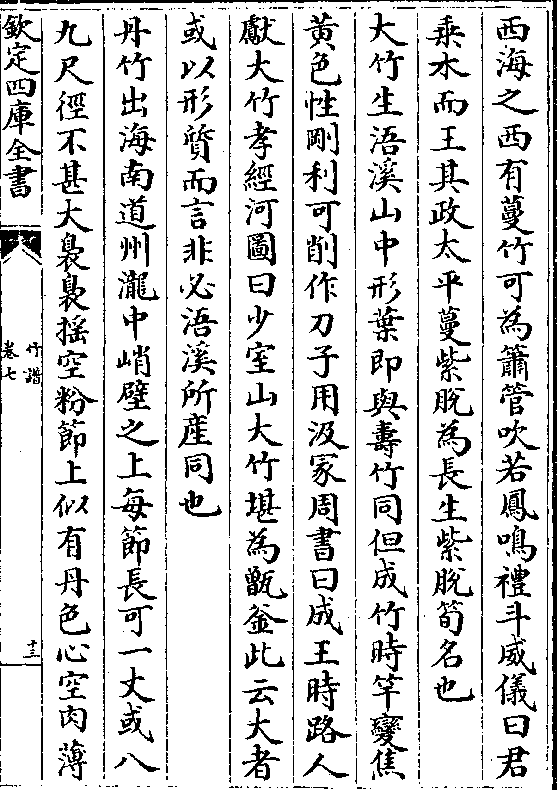 西海之西有蔓竹可為簫管吹若鳳鳴禮斗威儀曰君
乘水而王其政太平蔓紫脫為長生紫脫筍名也
大竹生浯溪山中形葉即與壽竹同但成竹時竿變焦
黃色性剛利可削作刀子用汲冢周書曰成王時路人
獻大竹孝經河圖曰少室山大竹堪為甑釜此云大者
或以形質而言非必浯溪所產同也
丹竹出海南道州瀧中峭壁之上每節長可一丈或八
九尺徑不甚大裊裊揺空粉節上似有丹色心空肉薄
欽定四庫全書
竹譜
卷七
十三